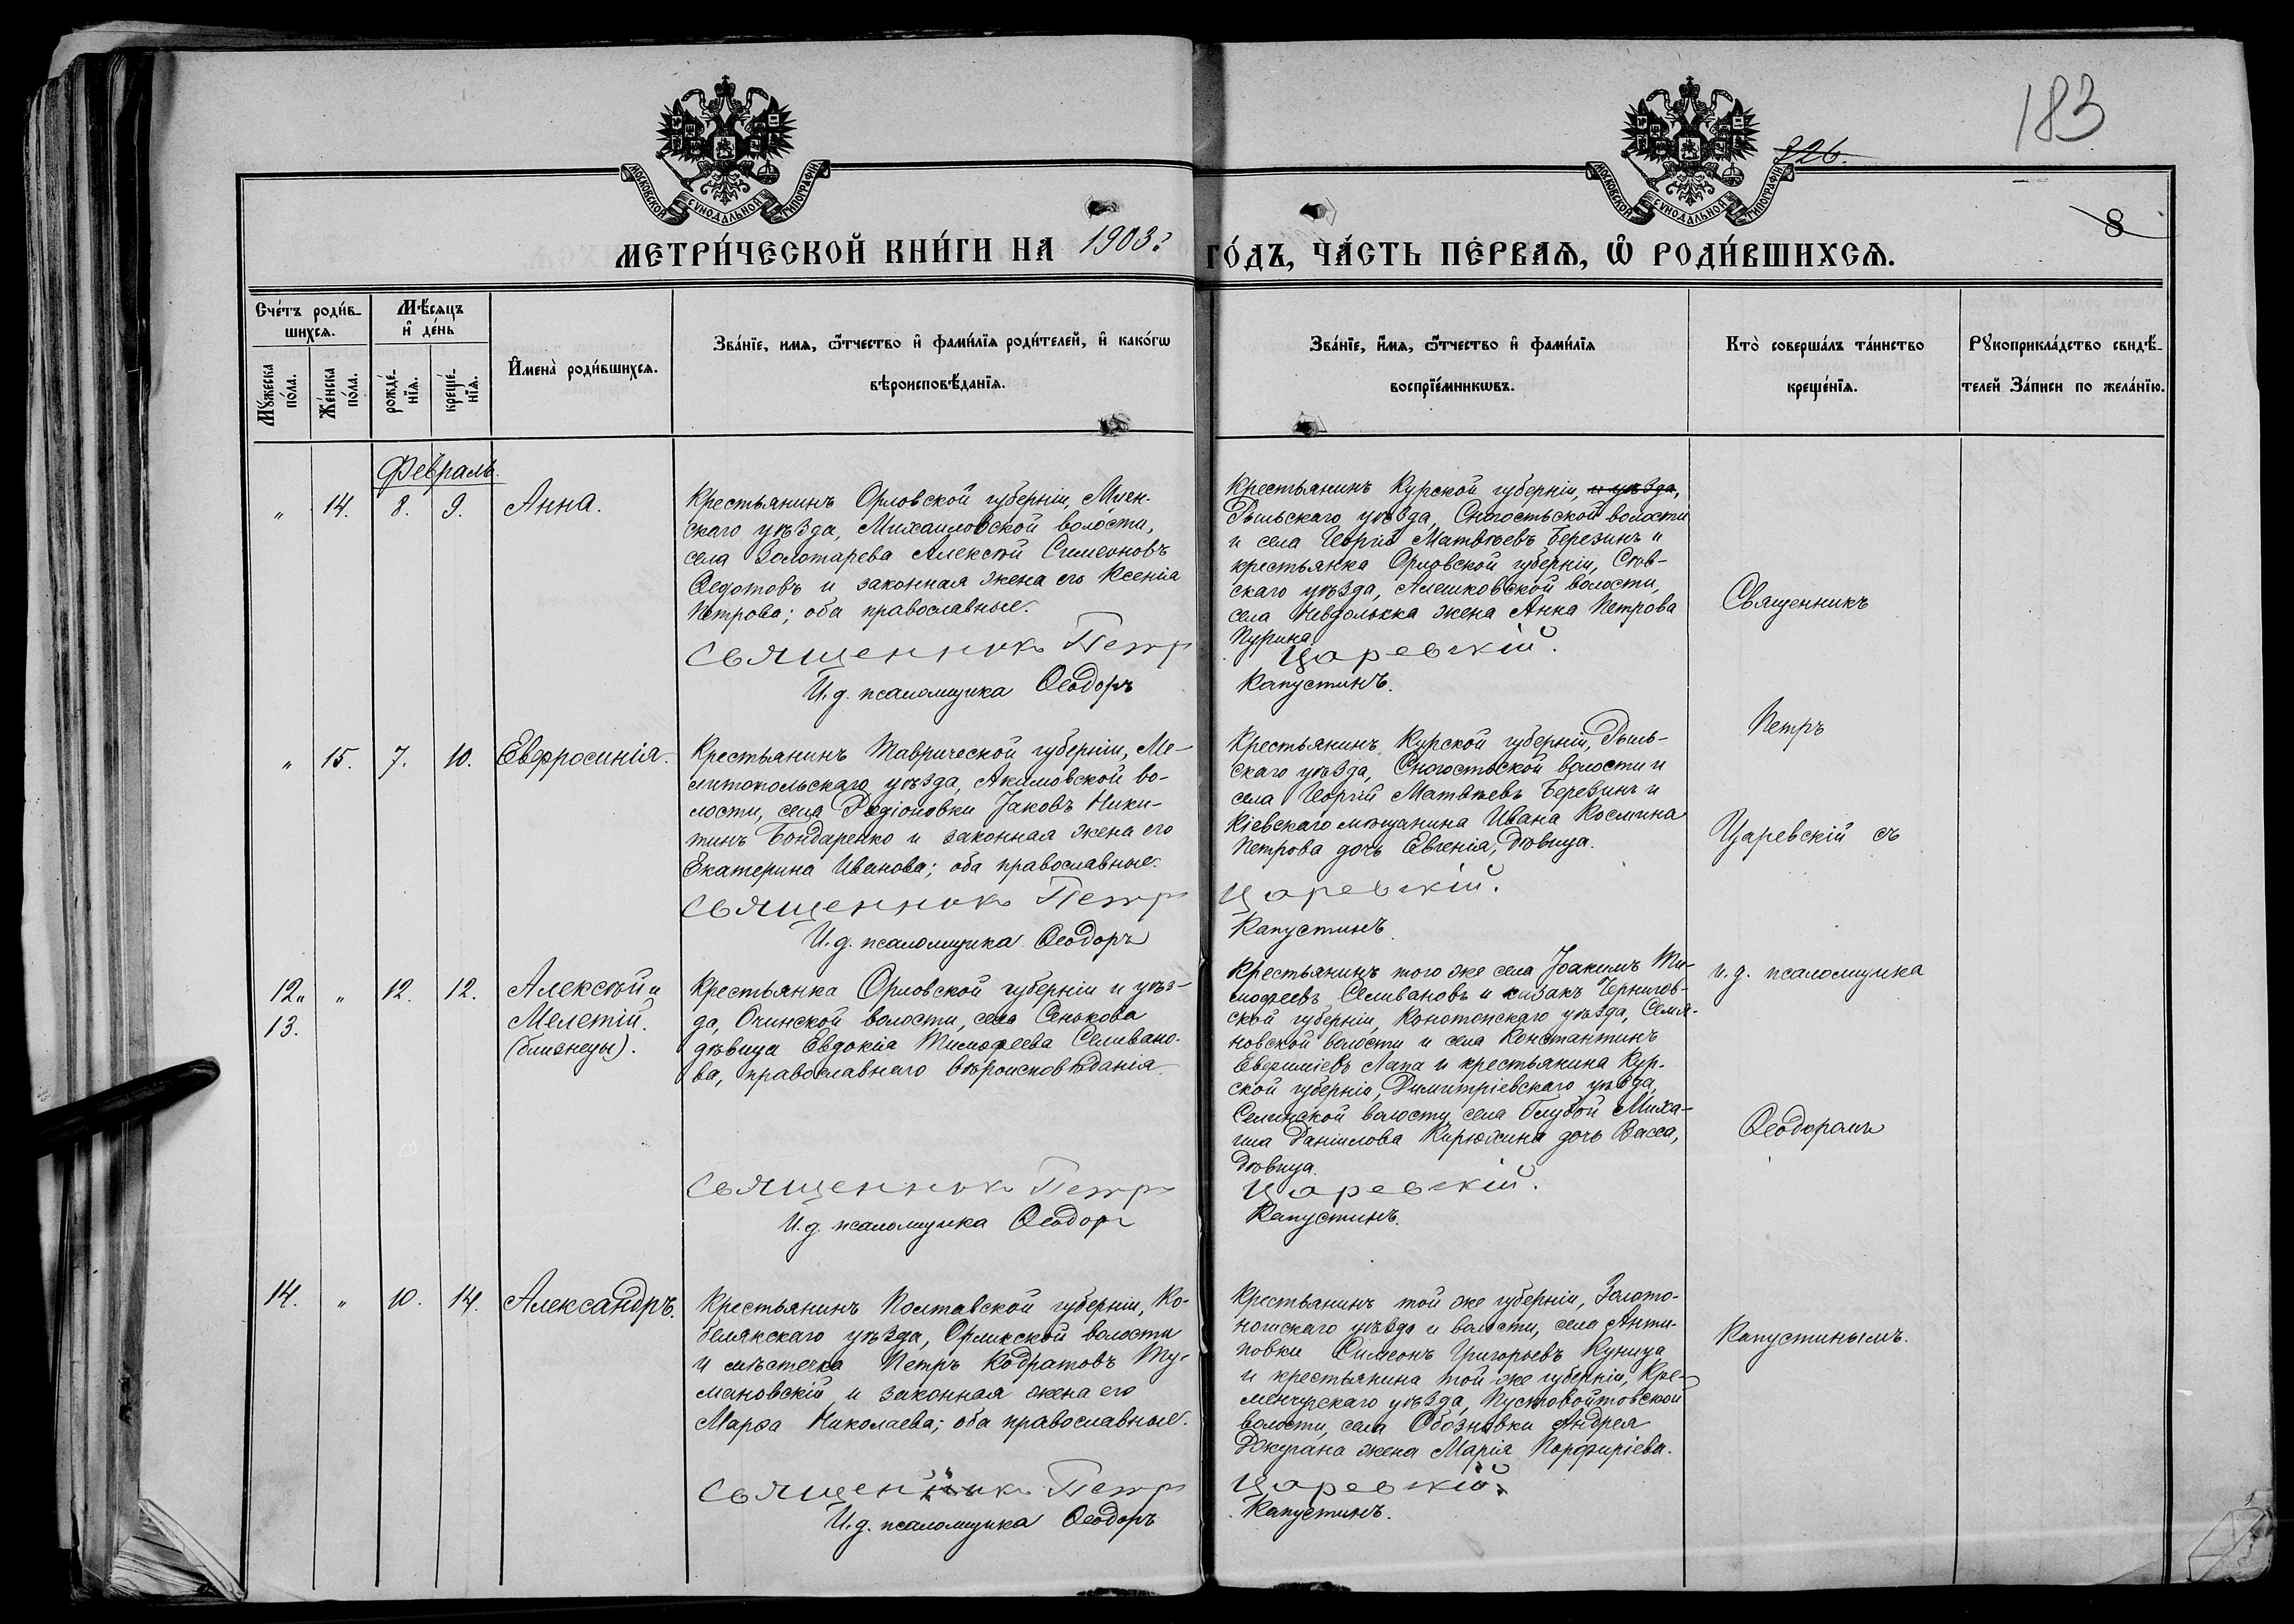 183
326.
8
МОСКОВСКОЙ СѴНОДАЛЬНОЙ ТИПОГРАФІИ
МОСКОВСКОЙ СѴНОДАЛЬНОЙ ТИПОГРАФІИ
МЕТРИ́ЧЕСКОЙ КНИ́ГИ НА 1903 г
ГО́ДЪ, ЧА́СТЬ ПЕ́РВАѦ, Ѡ҆ РОДИ́ВШИХСѦ.
Сче́тъ роди́в-
шихсѧ.
Мꙋ́жеска
по́ла.
Же́нска
по́ла.
Мѣ́сѧцъ
и҆ де́нь
рожде́-
нїѧ.
креще́-
нїѧ.
И҆мена̀ роди́вшихсѧ.
Зва́нїе, имѧ, ѻ҆́тчество и҆ фами́лїѧ роди́телей, и҆ како́гѡ
вѣроисповѣ́данїѧ.
Зва́нїе, и҆́мѧ, ѻ҆́тчество и҆ фами́лїѧ
воспрїе́мникѡвъ.
Кто̀ соверша́лъ та́инство
креще́нїѧ.
Рꙋкоприкла́дство свидѣ́-
телей За́писи по жела́нїю.
Февраль.
" 14. 8. 9. Анна.
Крестьянинъ Орловской губерніи, Мцен-
скаго уѣзда, Михаиловской волости,
села Золотарева Алексѣй Симеоновъ
Ѳедотовъ и законная жена его Ксенія
Петрова; оба православные.
Священникъ Петр
И. д. псаломщика Ѳеодоръ
Крестьянинъ Курской губерніи, и уѣзда,
Рыльскаго уѣзда, Сногостьской волости
и села Георгій Матвѣевъ Березинъ и
крестьянка Орловской губерніи, Сѣв-
скаго уѣзда, Алешковской волости,
села Невдольска жена Анна Петрова
Пурина.
Царевскій.
Капустинъ.
Священникъ
Петръ
Царевскій съ
и. д. псаломщика
Ѳеодоромъ
Капустинымъ.
" 15. 7. 10. Евфросинія.
Крестьянинъ Таврической губерніи, Ме-
литопольскаго уѣзда, Акимовской во-
лости, села Родіоновки Іаковъ Ники-
тинъ Бондаренко и законная жена его
Екатерина Иванова; оба православные.
Священникъ Петр
И. д. псаломщика Ѳеодоръ
Крестьянинъ Курской губерніи, Рыль-
скаго уѣзда, Сногостьской волости и
села Георгій Матвѣевъ Березинъ и
Кіевскаго мѣщанина Ивана Космина
Петрова дочь Евгенія, дѣвица.
Царевскій.
Капустинъ.
12 и " 12. 12. Алексѣй и
13. Мелетій.
(близнецы).
Крестьянка Орловской губерніи и уѣз-
да, волости, села Сенькова
дѣвица Евдокія Тимоѳеева Селивано-
ва, православнаго вѣроисповѣданія.
Священникъ Петр
И. д. псаломщика Ѳеодоръ
Крестьянинъ того же села Іоакимъ Ти-
моѳеевъ Селивановъ и казакъ Чернигов-
ской губерніи, Конотопскаго уѣзда, Семя-
новской волости и села Константинъ
Евѳиміевъ Лапа и крестьянина Кур-
ской губерніи, Димитріевскаго уѣзда,
волости, села Миха-
ила Даніилова Кирюхина дочь Васса,
дѣвица.
Царевскій.
Капустинъ.
14. " 10. 14. Александръ.
Крестьянинъ Полтавской губерніи, Ко-
белякскаго уѣзда, Орликской волости
и мѣстечка Петръ Кодратовъ Ту-
мановскій и законная жена его
Марѳа Николаева; оба православные.
Священникъ Петр
И. д. псаломщика Ѳеодоръ
Крестьянинъ той же губерніи, Золото-
ношскаго уѣзда и волости, села Анти-
повки Симеонъ Григорьевъ Куница
и крестьянина той же губерніи, Кре-
менчугскаго уѣзда, Пустовойтовской
волости, села Обозновки Андрея
Джугана жена Марія Порфиріева.
Царевскій.
Капустинъ.